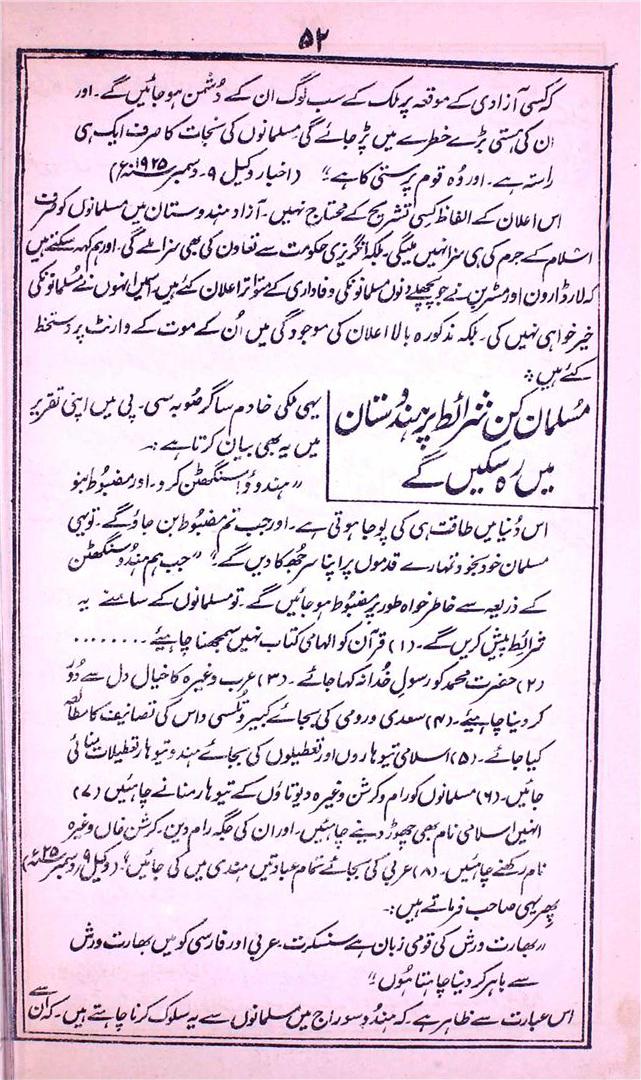 ۵۲
کہ کسی آزادی کے موقعہ پر ملک کے سب لوگ ان کے دشمن ہو جائیں گے۔ اور
ان کی ہستی بڑے خطرے میں پڑ جائے گی مسلمانوں کی نجات کا صرف ایک ہی
راستہ ہے۔ اور وہ قوم پرستی کا ہے؛“ (اخبار وکیل ۹۔ دسمبر ۱۹۲۵ء)
اس اعلان کے الفاظ کسی تشریح کے محتاج نہیں۔ آزاد ہندوستان میں مسلمانوں کو صرف
اسلام کے جرم کی ہی سزا نہیں ملیگی۔ بلکہ انگریزی حکومت سے تعاون کی بھی سزا ملے گی۔ اور ہم کہہ سکتے ہیں
کہ لارڈ ارون اور مشیرین نے جو پچھلے دنوں مسلمانونکی وفاداری کے متواتر اعلان کئے ہیں، اسمیں انہوں نے مسلمانونکی
خیر خواہی نہیں کی۔ بلکہ مذکورہ بالا اعلان کی موجودگی میں اُن کے موت کے وارنٹ پر دستخط
کئے ہیں؛
مسلمان کن شرائط پر ہندوستان
میں رہ سکیں گے
یہی ملکی خادم ساگر صوبہ سی۔ پی میں اپنی تقریر
میں یہ بھی بیان کرتا ہے:۔
”ہندوؤ! سنگھٹن کرو۔ اور مضبوط ہو
اس دُنیا میں طاقت ہی کی پوجا ہوتی ہے۔ اور جب تم مضبوط بن جاؤ گے۔ تو یہی
مسلمان خود بخود تمہارے قدموں پر اپنا سر جھکا دیں گے؛“ ”جب ہم ہندو سنگھٹن
کے ذریعہ سے خاطر خواہ طور پر مضبوط ہو جائیں گے۔ تو مسلمانوں کے سامنے یہ
شرائط پیش کریں گے۔ (۱) قرآن کو الہامی کتاب نہیں سمجھنا چاہیئے ........
(۲) حضرت محمدؐ کو رسول خدا نہ کہا جائے۔ (۳) عرب وغیرہ کا خیال دل سے دُور
کر دینا چاہیئے۔ (۴) سعدی و رومی کی بجائے کبیر و تلسی داس کی تصانیف کا مطالعہ
کیا جائے۔ (۵) اسلامی تیوہاروں اور تعطیلوں کی بجائے ہندو تیوہار تعطیلات منائی
جائیں۔ (۶) مسلمانوں کو رام و کرشن وغیرہ دیوتاؤں کے تیوہار منانے چاہئیں (۷)
انہیں اسلامی نام بھی چھوڑ دینے چاہئیں۔ اور ان کی جگہ رام دین۔ کرشن خاں وغیرہ
نام رکھنے چاہئیں۔ (۸) عربی کی بجائے تمام عبادتیں ہندی میں کی جائیں؛ (وکیل ۹ دسمبر ۲۵ء)
پھر یہی صاحب فرماتے ہیں:۔
”بھارت ورش کی قومی زبان ہے سنسکرت۔ عربی اور فارسی کو میں بھارت ورش
سے باہر کر دینا چاہتا ہوں؛“
اس عبارت سے ظاہر ہے۔ کہ ہندو سوراج میں مسلمانوں سے یہ سلوک کرنا چاہتے ہیں۔ کہ اُن سے